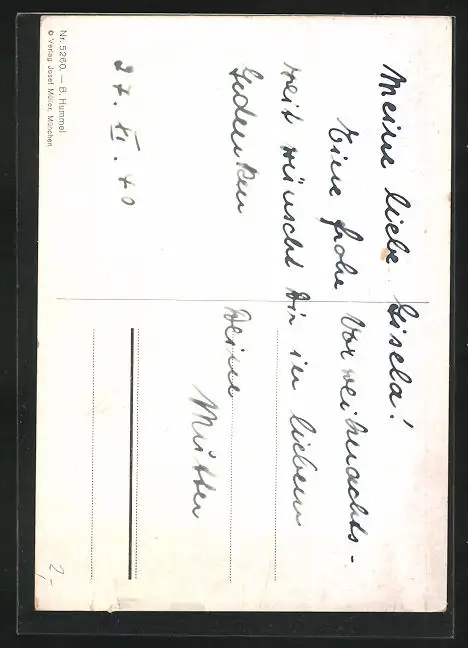 Meine liebe Gisela!
Eine frohe Vorweihnachts-
zeit wünscht Dir in lieben
Gedenken
Deine
Mutter
27. XI. 40
Nr. 5260. — B. Hummel
© Verlag Josef Müller, München
2,-